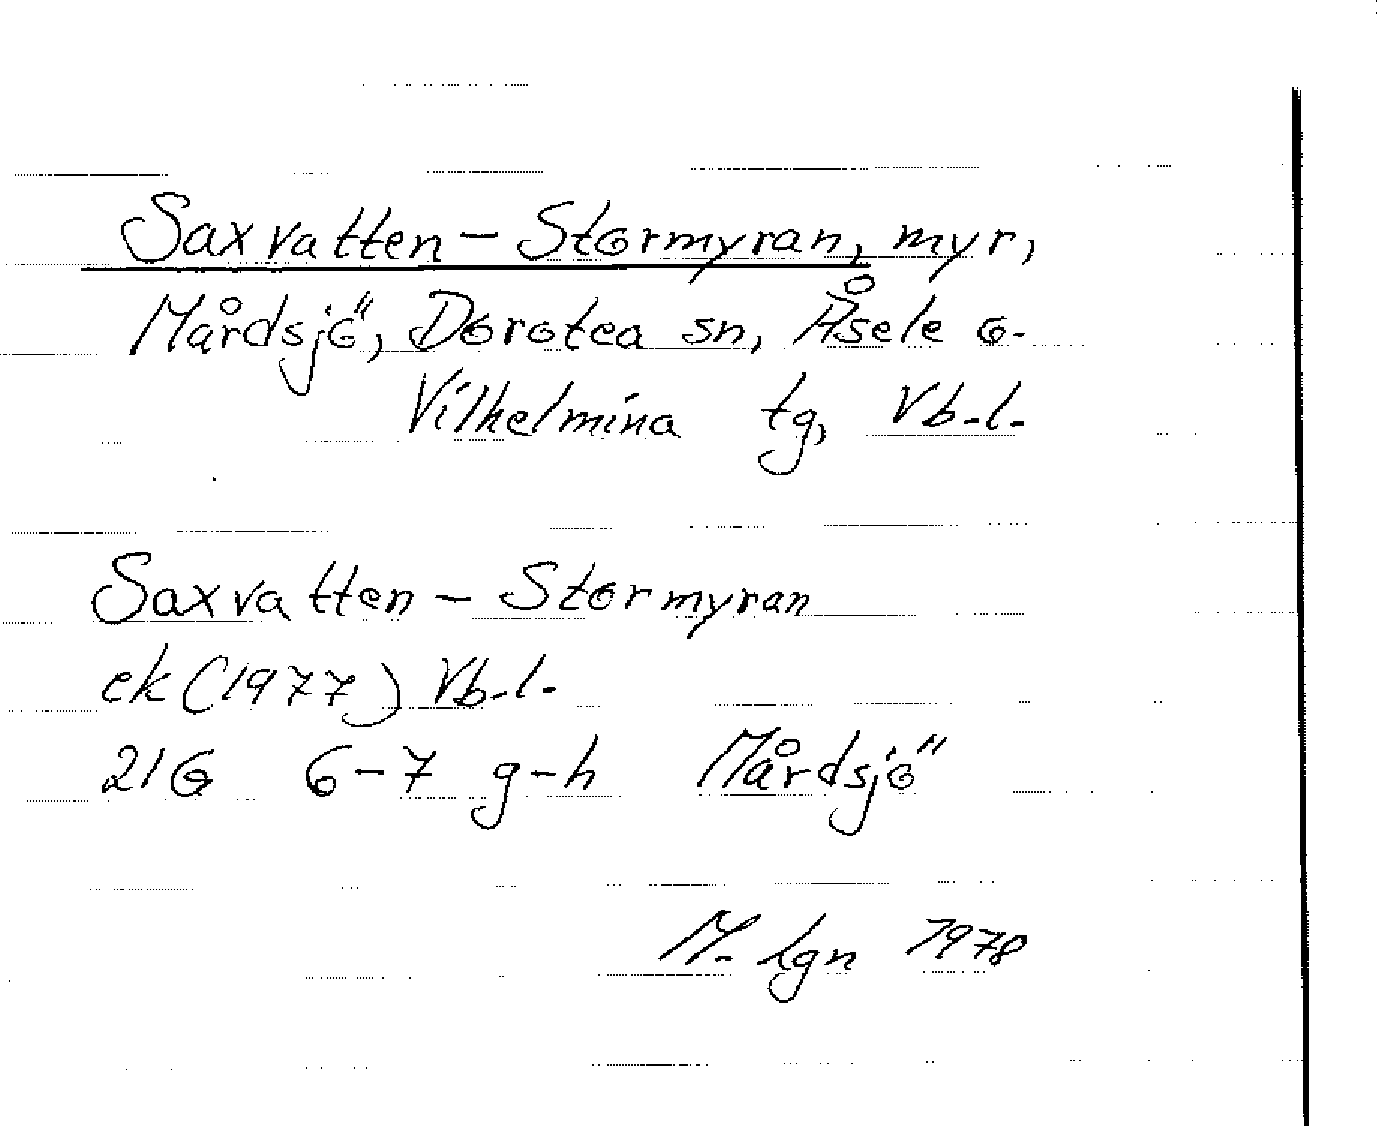 Saxvatten - Stormyran, myr,
Mårdsjö, Dorotea sn, Åsele o.
Vilhelmina tg, Vb.l.
Saxvatten - Stormyran
ek (1977) Vb.l.
21G 6-7 g-h Mårdsjö
M. lgn 1978